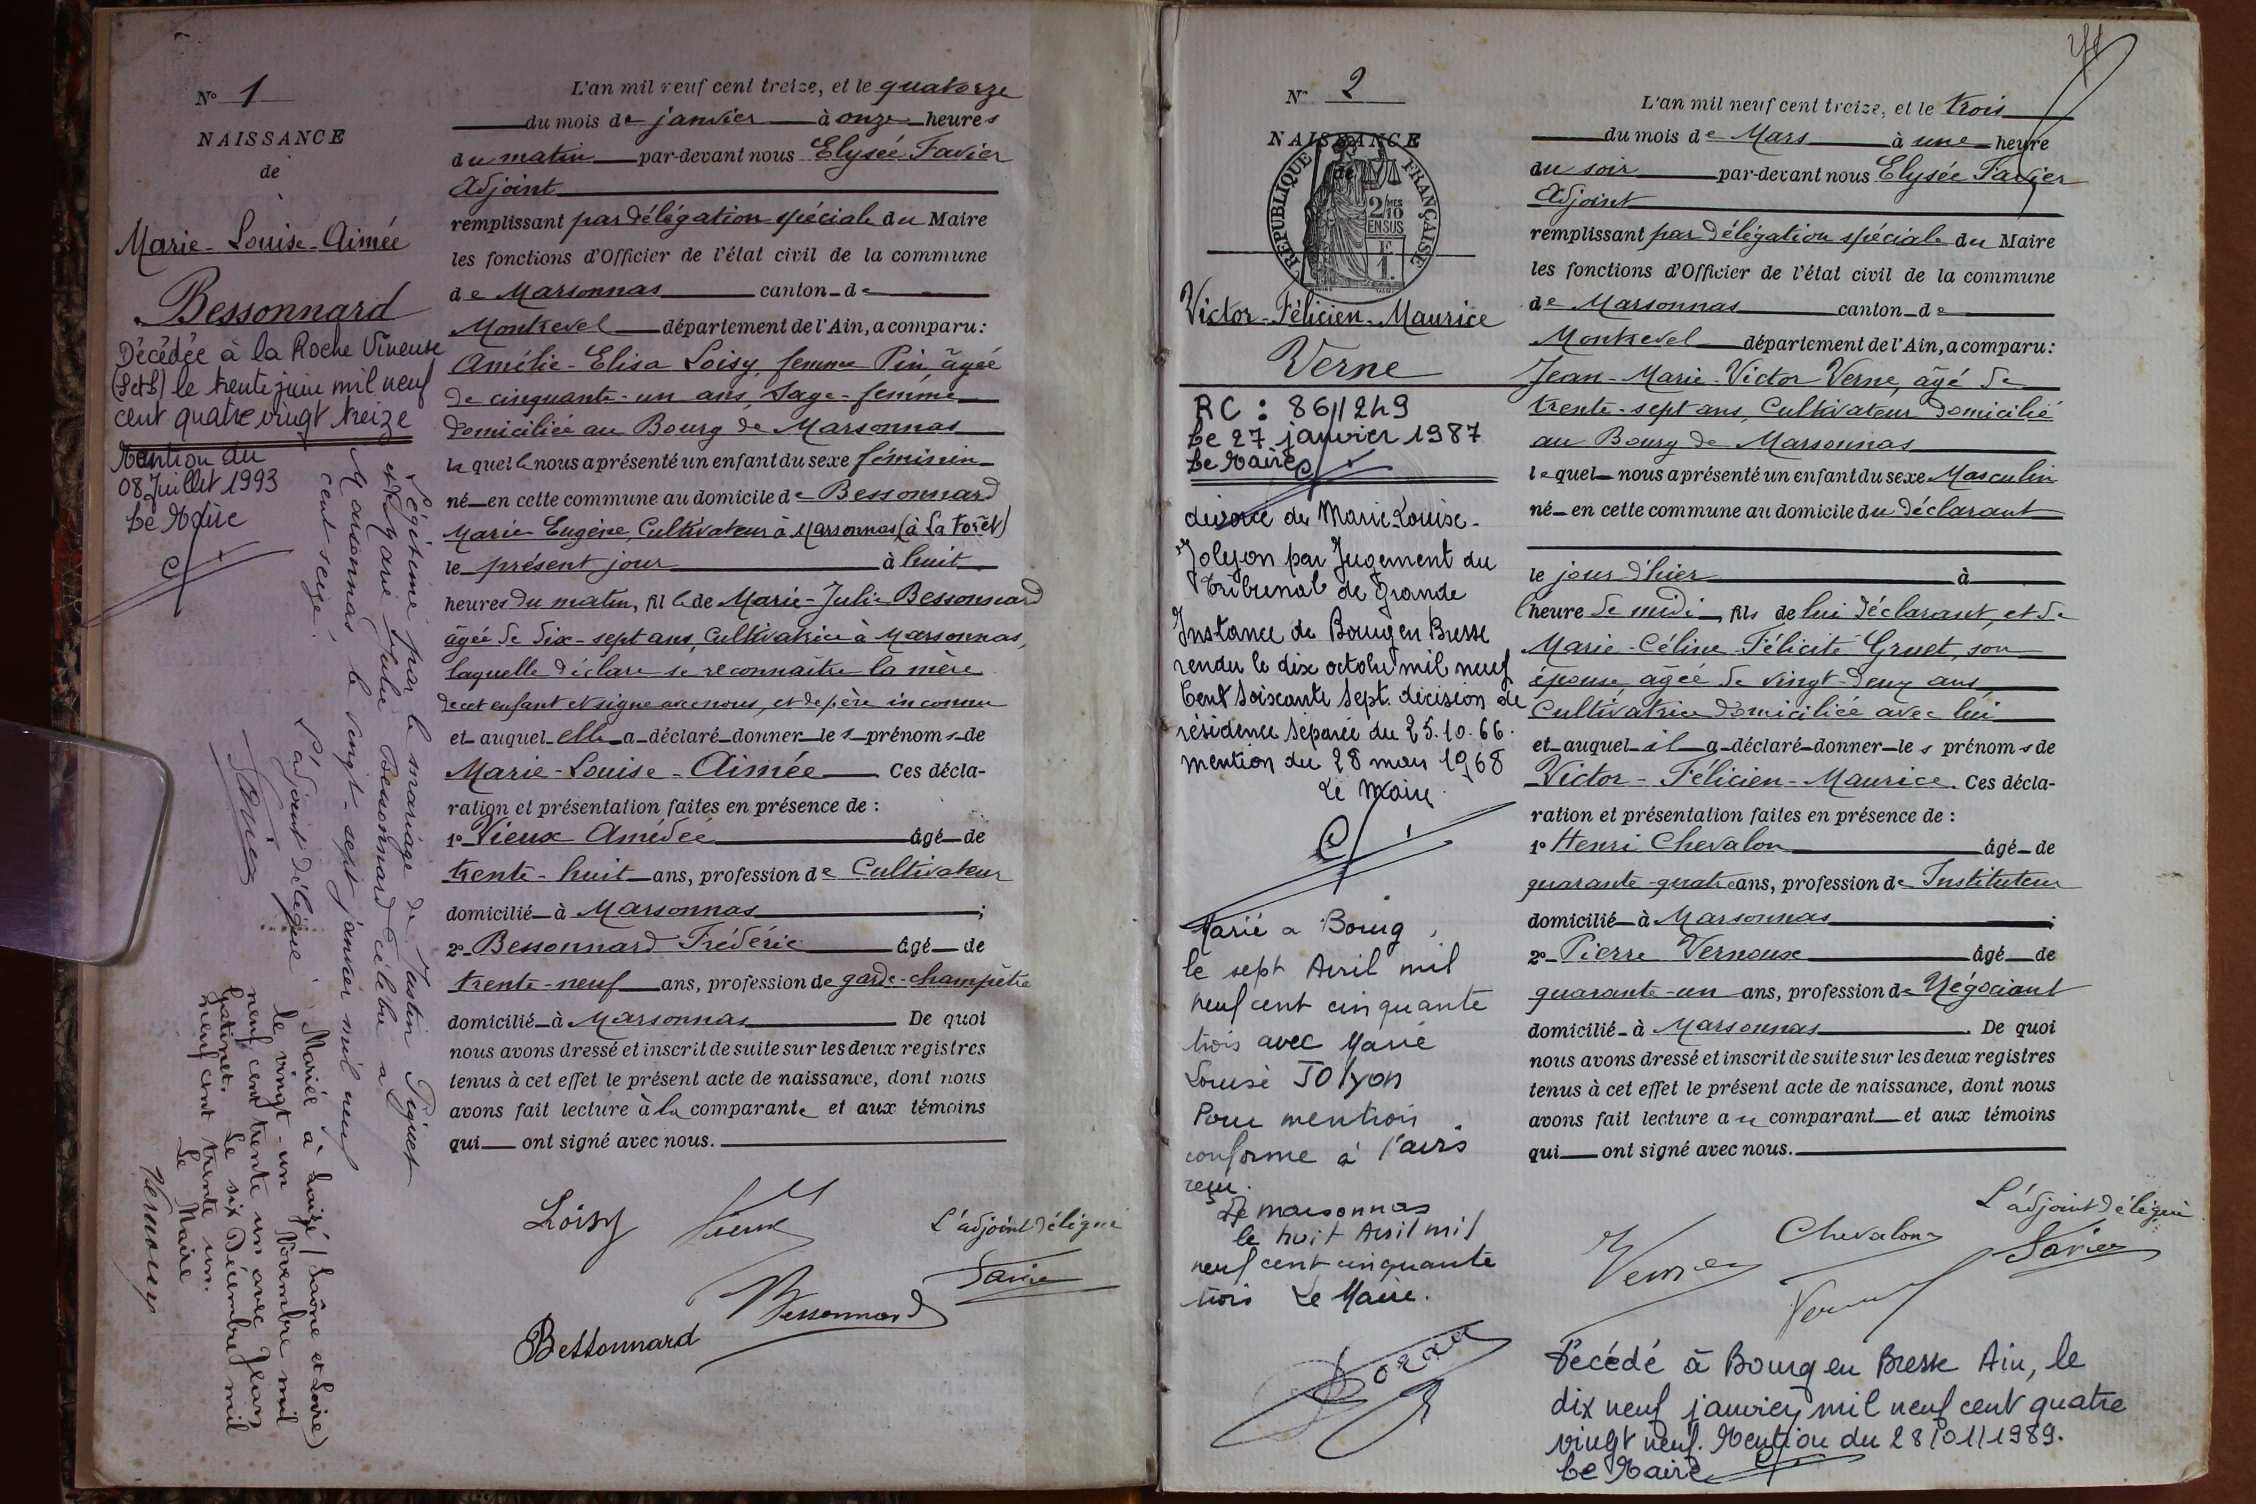 N° 1
NAISSANCE
de
Marie-Louise-Aimée
Bessonnard
Décédée à la Roche Vineuse
(S et L) le trente juin mil neuf
cent quatre vingt treize
Mention du
08 Juillet 1993
Le Maire
Légitimé par le mariage de Justin Piguet
et Marie Julie Bessonnard célébré à
Marsonnas le vingt-sept janvier mil neuf
cent seize.
L'adjoint délégué
Favier
Mariée à Laizé (Saône et Loire)
le vingt-un Novembre mil
neuf cent trente un avec Jean
Gatinet. Le six Décembre mil
neuf cent trente un.
Le Maire
Vernoux
L'an mil neuf cent treize, et le quatorze
du mois de janvier à onze heures
du matin par-devant nous Elysée Favier
Adjoint
remplissant par délégation spéciale du Maire
les fonctions d'Officier de l'état civil de la commune
de Marsonnas canton de
Montrevel département de l'Ain, a comparu :
Amélie-Elisa Loisy, femme Pin, âgée
de cinquante-un ans, Sage-femme
domiciliée au Bourg de Marsonnas
laquelle nous a présenté un enfant du sexe féminin
né en cette commune au domicile de Bessonnard
Marie Eugène, Cultivateur à Marsonnas (à La Forêt)
le présent jour à huit
heures du matin, fille de Marie-Julie Bessonnard
âgée de dix-sept ans, Cultivatrice à Marsonnas,
laquelle déclare se reconnaître la mère
de cet enfant et signe avec nous, et de père inconnu
et auquel elle a déclaré donner les prénoms de
Marie-Louise-Aimée Ces décla-
ration et présentation faites en présence de :
1° Vieux Amédée âgé de
trente-huit ans, profession de Cultivateur
domicilié à Marsonnas ;
2° Bessonnard Frédéric âgé de
trente-neuf ans, profession de garde-champêtre
domicilié à Marsonnas De quoi
nous avons dressé et inscrit de suite sur les deux registres
tenus à cet effet le présent acte de naissance, dont nous
avons fait lecture à la comparante et aux témoins
qui ont signé avec nous.
Loisy Vieux L'adjoint délégué
Favier
Bessonnard Bessonnard
N° 2
NAISSANCE
de
RÉPUBLIQUE FRANÇAISE
2/10 MES
EN SUS
F
1.
Victor-Félicien-Maurice
Verne
RC : 86/249
Le 27 janvier 1987
Le Maire
divorcé de Marie Louise
Jolyon par Jugement du
Tribunal de Grande
Instance de Bourg en Bresse
rendu le dix octobre mil neuf
Cent Soixante Sept. décision de
résidence séparée du 25.10.66.
mention du 28 mars 1968
Le Maire
Marié a Bourg,
le sept Avril mil
neuf cent cinquante
trois avec Marie
Louise JOlyon
Pour mention
conforme à l'avis
reçu.
De marsonnas
le huit Avril mil
neuf cent cinquante
trois Le Maire.
L'an mil neuf cent treize, et le trois
du mois de Mars à une heure
du soir par-devant nous Elysée Favier
Adjoint
remplissant par délégation spéciale du Maire
les fonctions d'Officier de l'état civil de la commune
de Marsonnas canton de
Montrevel département de l'Ain, a comparu :
Jean-Marie-Victor Verne, âgé de
trente-sept ans, Cultivateur domicilié
au Bourg de Marsonnas
lequel nous a présenté un enfant du sexe Masculin
né en cette commune au domicile du déclarant
le jour d'hier à
l'heure de midi, fils de lui déclarant, et de
Marie-Céline-Félicité Gruet, son
épouse, âgée de vingt-deux ans
Cultivatrice domiciliée avec lui
et auquel il a déclaré donner les prénoms de
Victor-Félicien-Maurice. Ces décla-
ration et présentation faites en présence de :
1° Henri Chevalon âgé de
quarante-quatre ans, profession de Instituteur
domicilié à Marsonnas ;
2° Pierre Vernoux âgé de
quarante-un ans, profession de Négociant
domicilié à Marsonnas. De quoi
nous avons dressé et inscrit de suite sur les deux registres
tenus à cet effet le présent acte de naissance, dont nous
avons fait lecture au comparant et aux témoins
qui ont signé avec nous.
L'adjoint délégué
Verne Chevalon Favier
Décédé à Bourg en Bresse Ain, le
dix neuf janvier mil neuf cent quatre
vingt neuf. Mention du 28/01/1989.
Le Maire